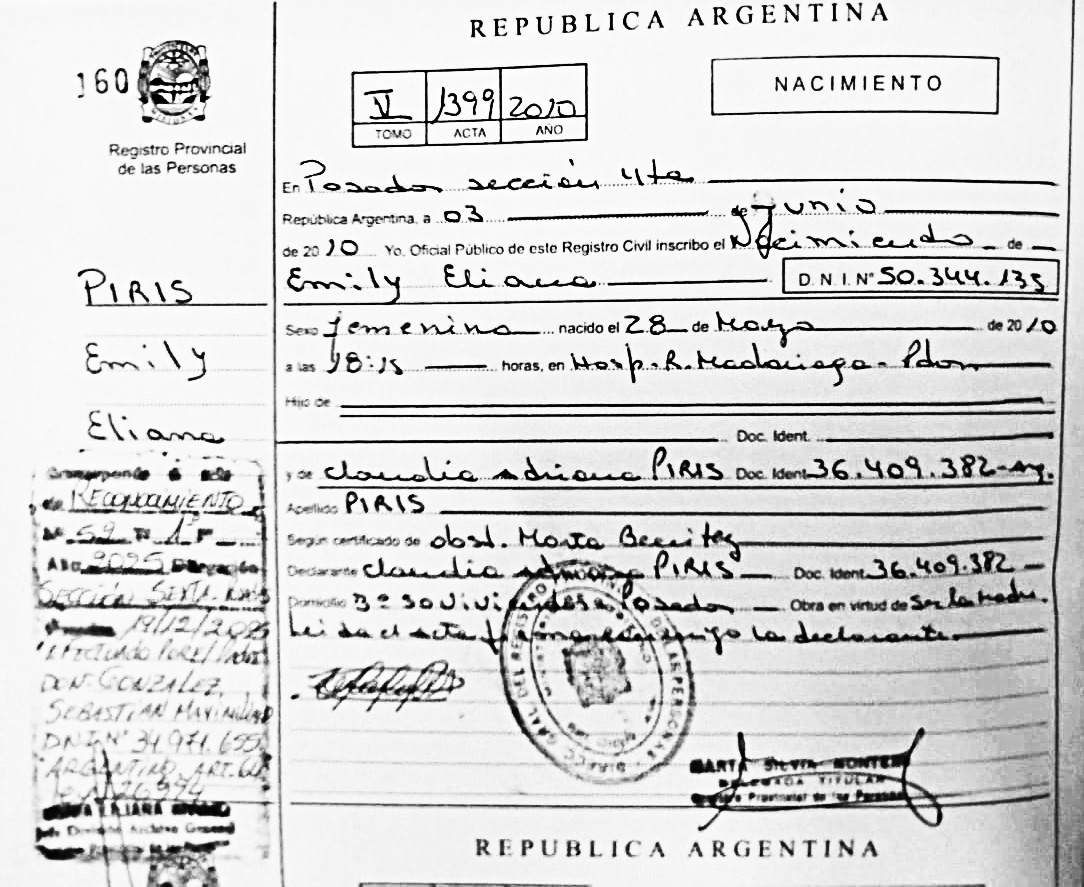 REPUBLICA ARGENTINA
160
Registro Provincial
de las Personas
V 1399 2010
TOMO ACTA AÑO
NACIMIENTO
En Posadas sección 4ta
República Argentina, a 03 de Junio
de 2010 Yo, Oficial Público de este Registro Civil inscribo el Nacimiento de
Emily Eliana D.N.I.Nº 50.344.135
Sexo femenino nacido el 28 de Mayo de 2010
a las 18:15 horas, en Hosp. R. Madariaga - Pdas
Hijo de
Doc. Ident.
y de Claudia Adriana PIRIS Doc. Ident. 36.409.382-Arg.
Apellido PIRIS
Según certificado de obst. Marta Benitez
Declarante Claudia Adriana PIRIS Doc. Ident. 36.409.382
Domicilio Posadas Obra en virtud de Ser la Madre.
Leida el acta la declarante.
PIRIS
Emily
Eliana
Corresponde a acta
de RECONOCIMIENTO
Nº 59 Tº 1º Fº
Año 2025 Delegación
SECCIÓN SEXTA
19/12/2025
EFECTUADO POR EL PADRE
DON GONZALEZ,
SEBASTIAN MAXIMILIANO
DNI Nº 34.971.655
ARGENTINO. ART.
26994
División Archivo General
DE LAS PERSONAS
MARTA SILVIA
DELEGADA TITULAR
Provincial de las Personas
REPUBLICA ARGENTINA